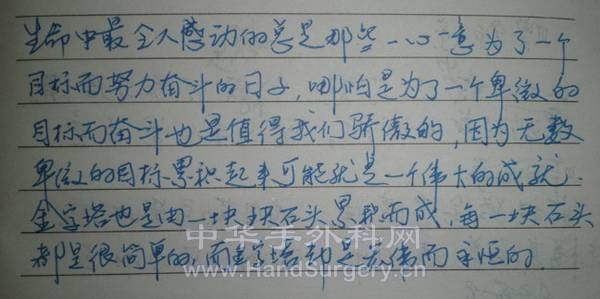 生命中最令人感动的总是那些一心一意为了一个
目标而努力奋斗的日子,哪怕是为了一个卑微的
目标而奋斗也是值得我们骄傲的,因为无数
卑微的目标累积起来可能就是一个伟大的成就.
金字塔也是由一块块石头累积而成,每一块石头
都是很简单的,而金字塔却是宏伟而永恒的.
中华手外科网
www.HandSurgery.cn